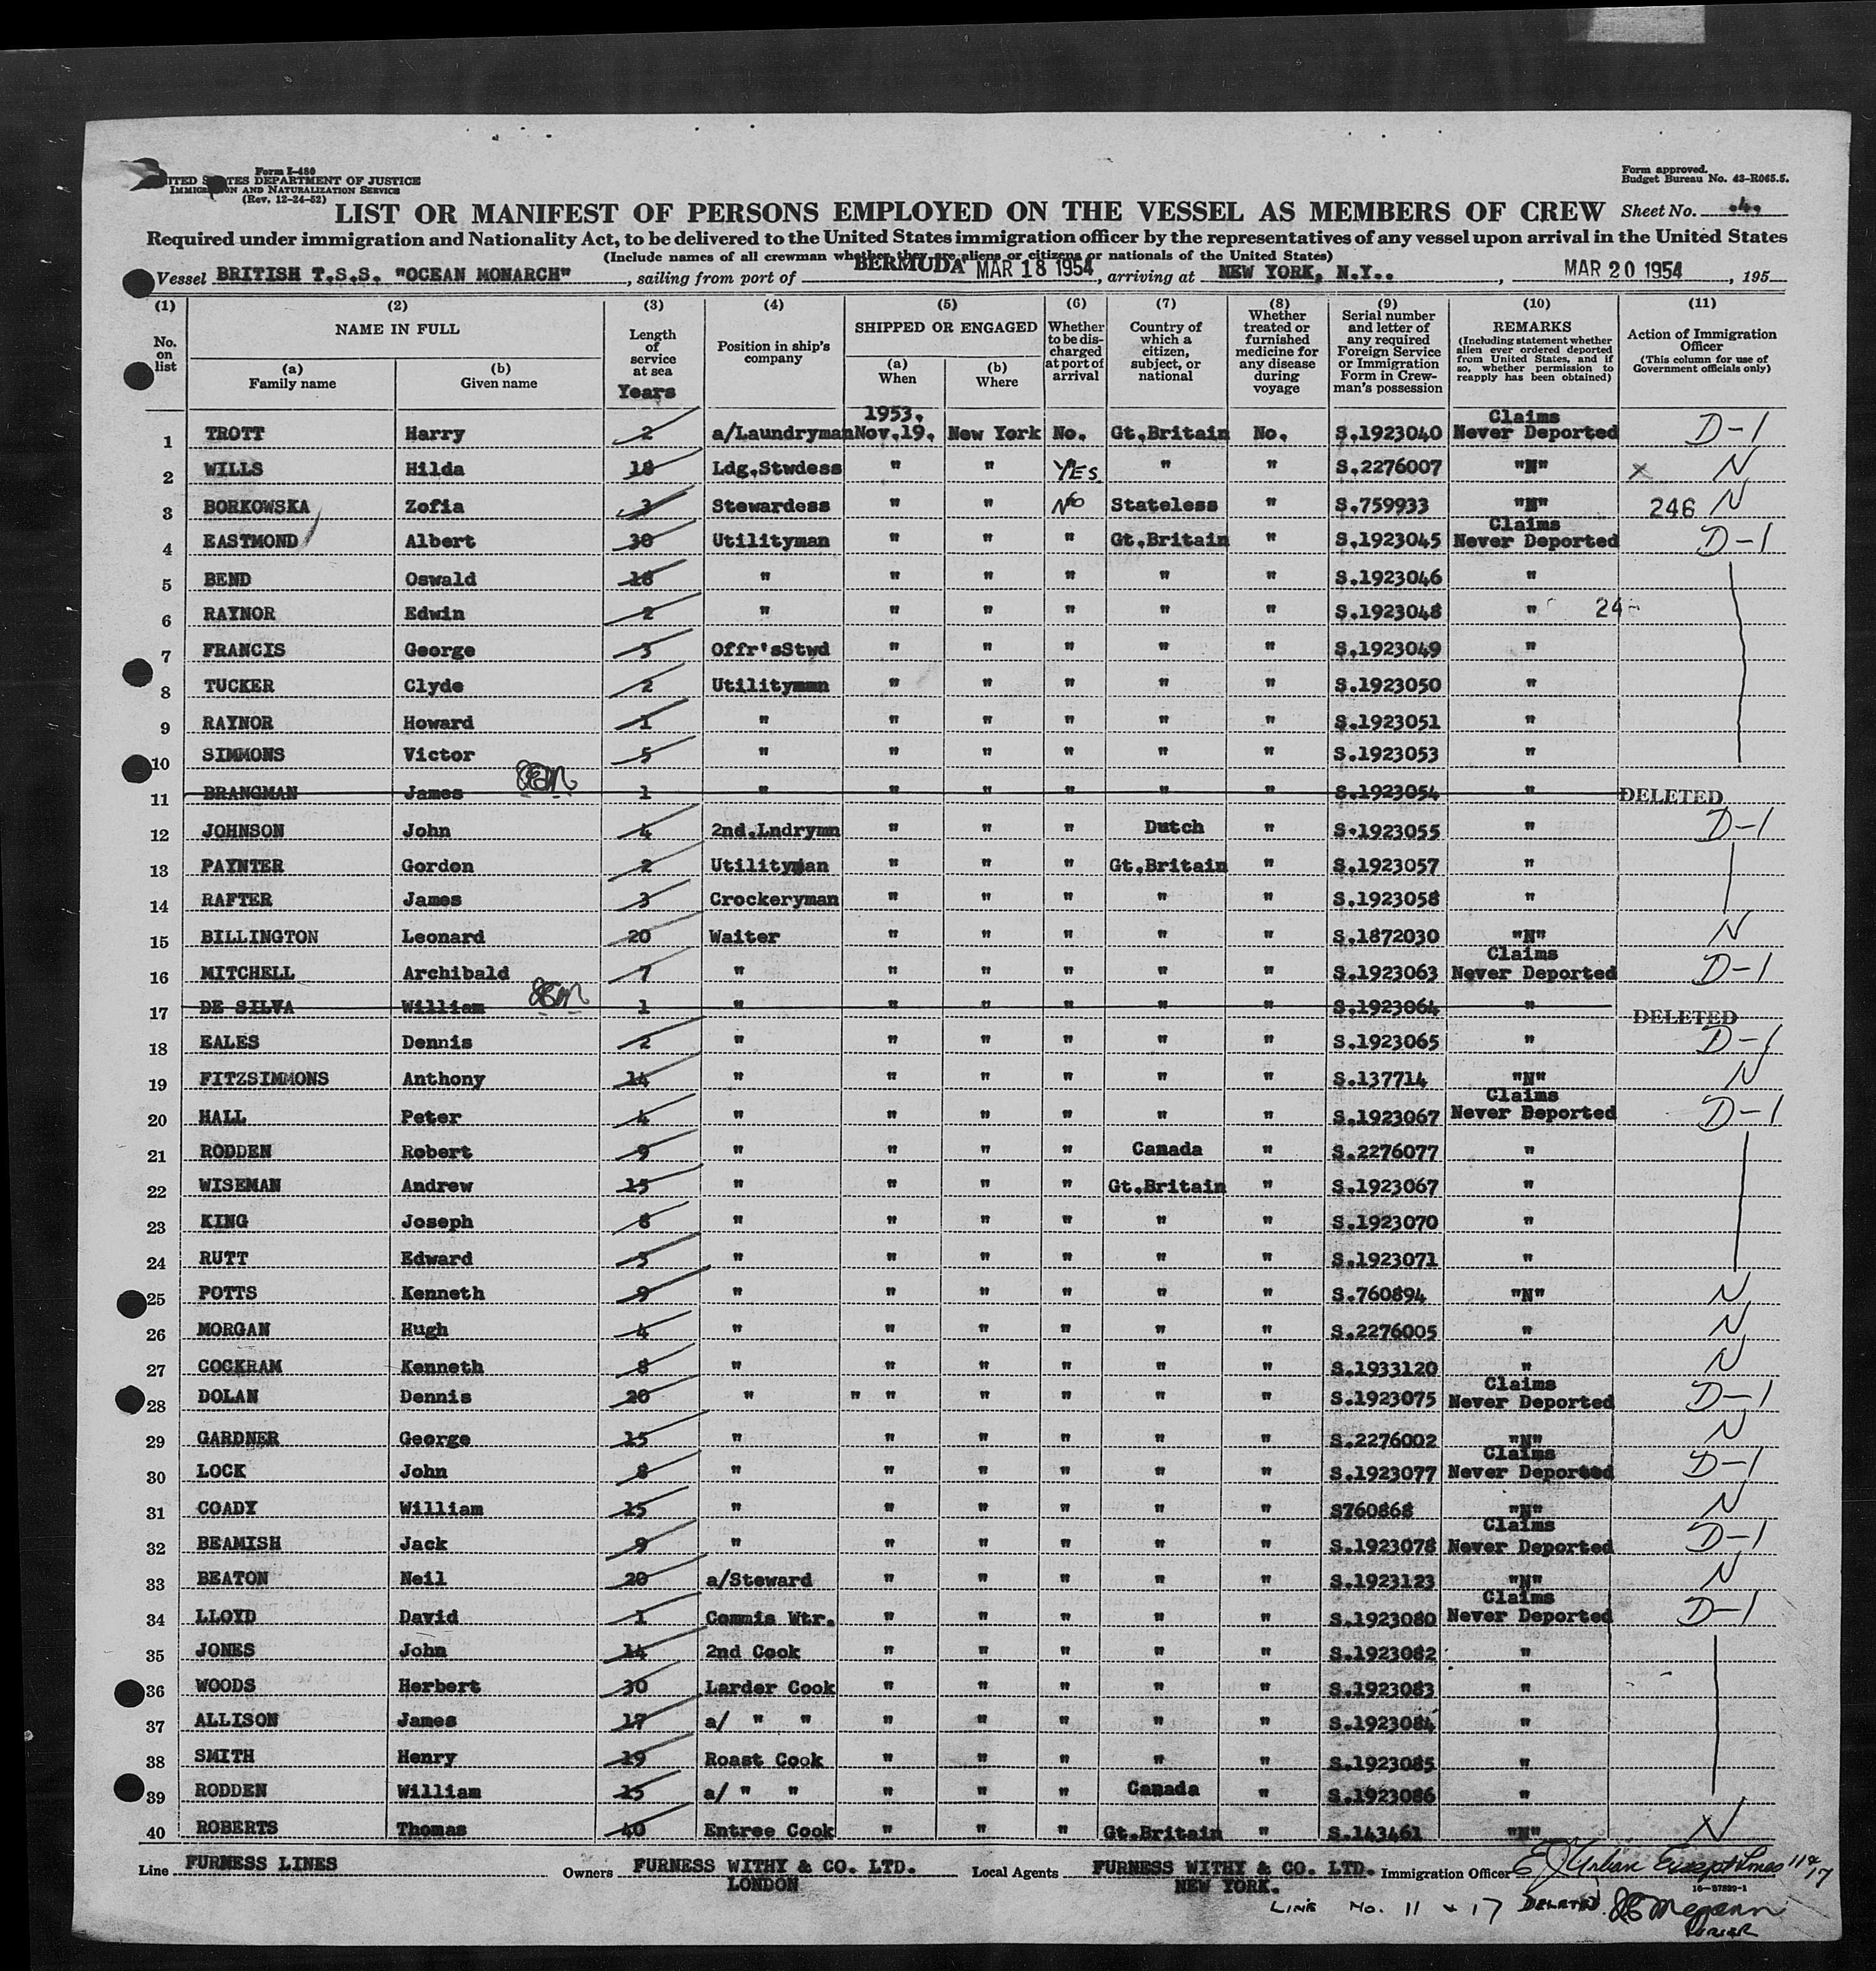 Form I-480
UNITED STATES DEPARTMENT OF JUSTICE
IMMIGRATION AND NATURALIZATION SERVICE
(Rev. 12-24-52)
Form approved.
Budget Bureau No. 43-R065.5.
LIST OR MANIFEST OF PERSONS EMPLOYED ON THE VESSEL AS MEMBERS OF CREW Sheet No. .4.
Required under immigration and Nationality Act, to be delivered to the United States immigration officer by the representatives of any vessel upon arrival in the United States
(Include names of all crewman whether they are aliens or citizens or nationals of the United States)
Vessel BRITISH T.S.S. "OCEAN MONARCH", sailing from port of BERMUDA MAR 18 1954, arriving at NEW YORK, N.Y.., MAR 20 1954, 195
(1) (2) (3) (4) (5) (6) (7) (8) (9) (10) (11)
No. on list
NAME IN FULL
(a) Family name
(b) Given name
Length of service at sea
Years
Position in ship's company
SHIPPED OR ENGAGED
(a) When
(b) Where
Whether to be discharged at port of arrival
Country of which a citizen, subject, or national
Whether treated or furnished medicine for any disease during voyage
Serial number and letter of any required Foreign Service or Immigration Form in Crewman's possession
REMARKS
(Including statement whether alien ever ordered deported from United States, and if so, whether permission to reapply has been obtained)
Action of Immigration Officer
(This column for use of Government officials only)
1953.
1 TROTT Harry 2 a/Laundryman Nov.19. New York No. Gt.Britain No. S.1923040 Claims Never Deported D-1
2 WILLS Hilda 18 Ldg.Stwdess " " YES " " S.2276007 "N" x N
3 BORKOWSKA Zofia 3 Stewardess " " No Stateless " S.759933 "N" 246 N
4 EASTMOND Albert 30 Utilityman " " " Gt.Britain " S.1923045 Claims Never Deported D-1
5 BEND Oswald 18 " " " " " " S.1923046 "
6 RAYNOR Edwin 2 " " " " " " S.1923048 " 24-
7 FRANCIS George 3 Offr'sStwd " " " " " S.1923049 "
8 TUCKER Clyde 2 Utilityman " " " " " S.1923050 "
9 RAYNOR Howard 1 " " " " " " S.1923051 "
10 SIMMONS Victor 5 " " " " " " S.1923053 "
11 BRANGMAN James 1 " " " " " " S.1923054 " DELETED
12 JOHNSON John 4 2nd.Lndrymn " " " Dutch " S.1923055 " D-1
13 PAYNTER Gordon 2 Utilityman " " " Gt.Britain " S.1923057 "
14 RAFTER James 3 Crockeryman " " " " " S.1923058 "
15 BILLINGTON Leonard 20 Waiter " " " " " S.1872030 "N" N
16 MITCHELL Archibald 7 " " " " " " S.1923063 Claims Never Deported D-1
17 DE SILVA William 1 " " " " " " S.1923064 " DELETED
18 EALES Dennis 2 " " " " " " S.1923065 " D-1
19 FITZSIMMONS Anthony 14 " " " " " " S.137714 "N" N
20 HALL Peter 4 " " " " " " S.1923067 Claims Never Deported D-1
21 RODDEN Robert 9 " " " " Canada " S.2276077 "
22 WISEMAN Andrew 15 " " " " Gt.Britain " S.1923067 "
23 KING Joseph 8 " " " " " " S.1923070 "
24 RUTT Edward 3 " " " " " " S.1923071 "
25 POTTS Kenneth 9 " " " " " " S.760894 "N" N
26 MORGAN Hugh 4 " " " " " " S.2276005 " N
27 COCKRAM Kenneth 8 " " " " " " S.1933120 " N
28 DOLAN Dennis 20 " " " " " " " S.1923075 Claims Never Deported D-1
29 GARDNER George 15 " " " " " " S.2276002 "N" N
30 LOCK John 8 " " " " " " S.1923077 Claims Never Deported D-1
31 COADY William 15 " " " " " " S760868 "N" N
32 BEAMISH Jack 9 " " " " " " S.1923078 Claims Never Deported D-1
33 BEATON Neil 20 a/Steward " " " " " S.1923123 "N" N
34 LLOYD David 1 Commis Wtr. " " " " " S.1923080 Claims Never Deported D-1
35 JONES John 14 2nd Cook " " " " " S.1923082 "
36 WOODS Herbert 30 Larder Cook " " " " " S.1923083 "
37 ALLISON James 17 a/ " " " " " " " S.1923084 "
38 SMITH Henry 19 Roast Cook " " " " " S.1923085 "
39 RODDEN William 15 a/ " " " " " Canada " S.1923086 "
40 ROBERTS Thomas 40 Entree Cook " " " Gt.Britain " S.143461 "N" N
Line FURNESS LINES Owners FURNESS WITHY & CO. LTD. LONDON Local Agents FURNESS WITHY & CO. LTD. NEW YORK. Immigration Officer Except Lines 11 & 17
16-67829-1
LINE No. 11 & 17 DELETED